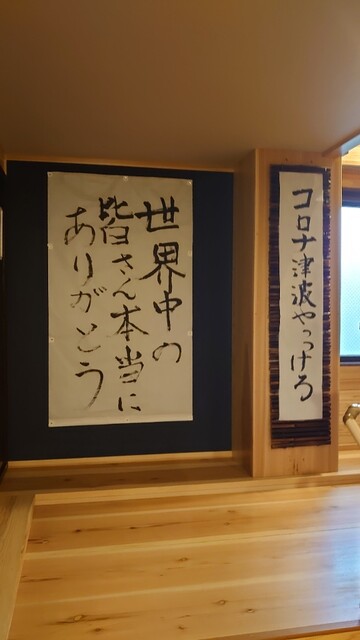 コロナ津波やっつけろ
世界中の
皆さん本当に
ありがとう